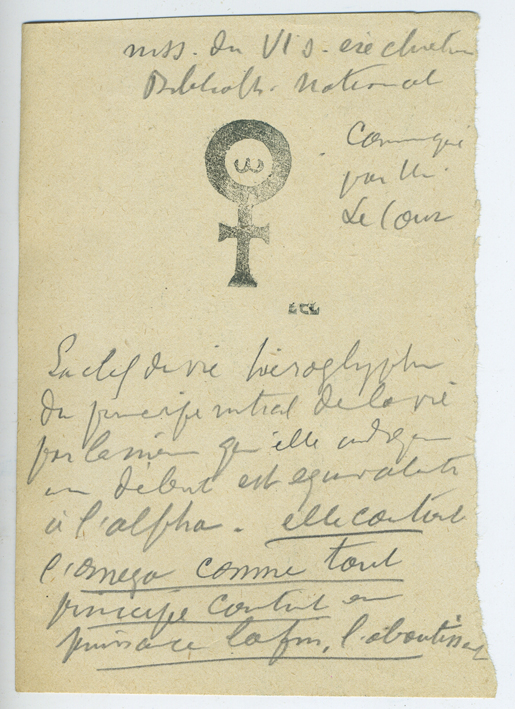 mss. du VI s. ere chretien
Biblioth. National
ω
Communiqué
par Mr
Le Cour
La clef de vie hieroglyphe
du principe initial de la vie
par la même qu'elle indique
un début est equivalente
à l'alpha. elle contient
l'omega comme tout
principe contient en
puissance la fin, l'aboutiss